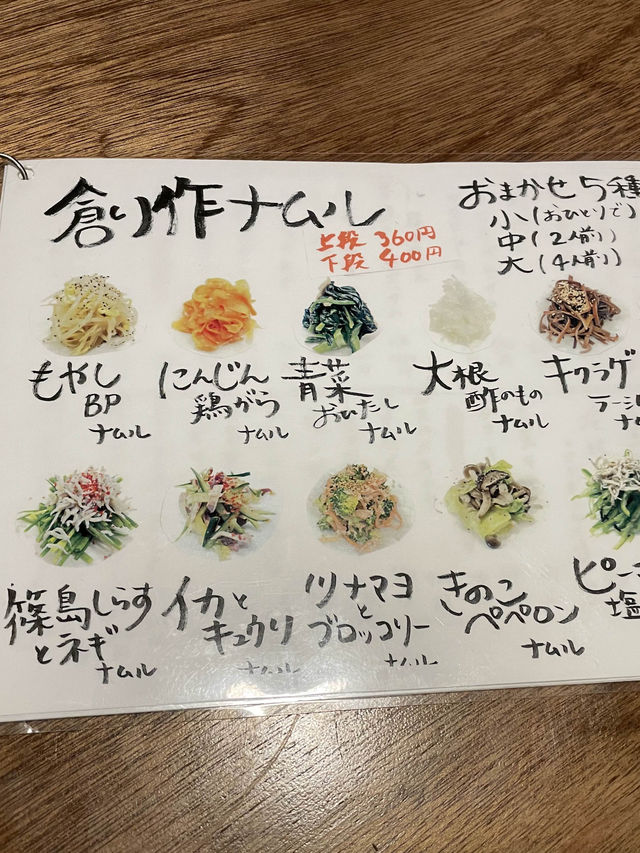 創作ナムル
上段 360円
下段 400円
おまかせ5種
小(おひとりで)
中(2人前)
大(4人前)
もやし
BP
ナムル
にんじん
鶏がら
ナムル
青菜
おひたし
ナムル
大根
酢のもの
ナムル
キクラゲ
ラー
ナム
篠島しらす
とネギ
ナムル
イカと
キュウリ
ナムル
ツナマヨ
と
ブロッコリー
ナムル
きのこ
ペペロン
ナムル
ピー
塩